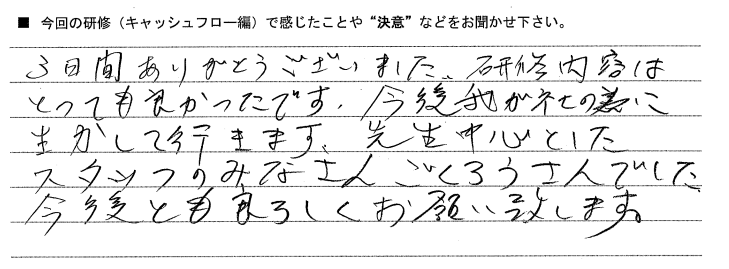 ■ 今回の研修（キャッシュフロー編）で感じたことや“決意”などをお聞かせ下さい。
3日間ありがとうございました。研修内容は
とっても良かったです。今後我が社の為に
生かして行きます。先生中心とした
スタッフのみなさんごくろうさんでした。
今後とも良ろしくお願い致します。